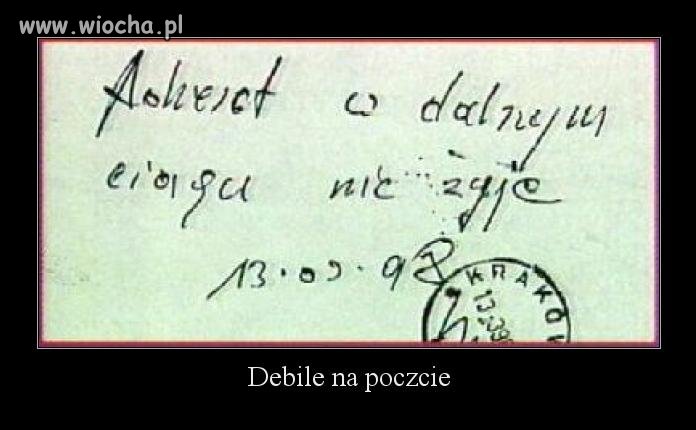 www.wiocha.pl
Adresat w dalnym
ciągu nie żyje
13.09.98
KRAKÓW
Debile na poczcie